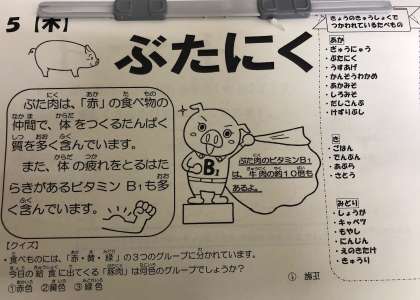 5【木】
ぶたにく
ぶた肉は、「赤」の食べ物の
仲間で、体をつくるたんぱく
質を多く含んでいます。
また、体の疲れをとるはた
らきがあるビタミンB1も多
く含んでいます。
B1
ぶた肉のビタミンB1
は、牛肉の約10倍も
あるよ。
【クイズ】
・食べものには、「赤・黄・緑」の3つのグループに分かれています。
今日の給食に出てくる「豚肉」は何色のグループでしょうか？
①赤色 ②黄色 ③緑色
きょうのきゅうしょくで
つかわれているたべもの
あか
・ぎゅうにゅう
・ぶたにく
・うすあげ
・かんそうわかめ
・あかみそ
・しろみそ
・だしこんぶ
・けずりぶし
き
・ごはん
・でんぷん
・あぶら
・さとう
みどり
・しょうが
・キャベツ
・もやし
・にんじん
・えのきたけ
・きゅうり